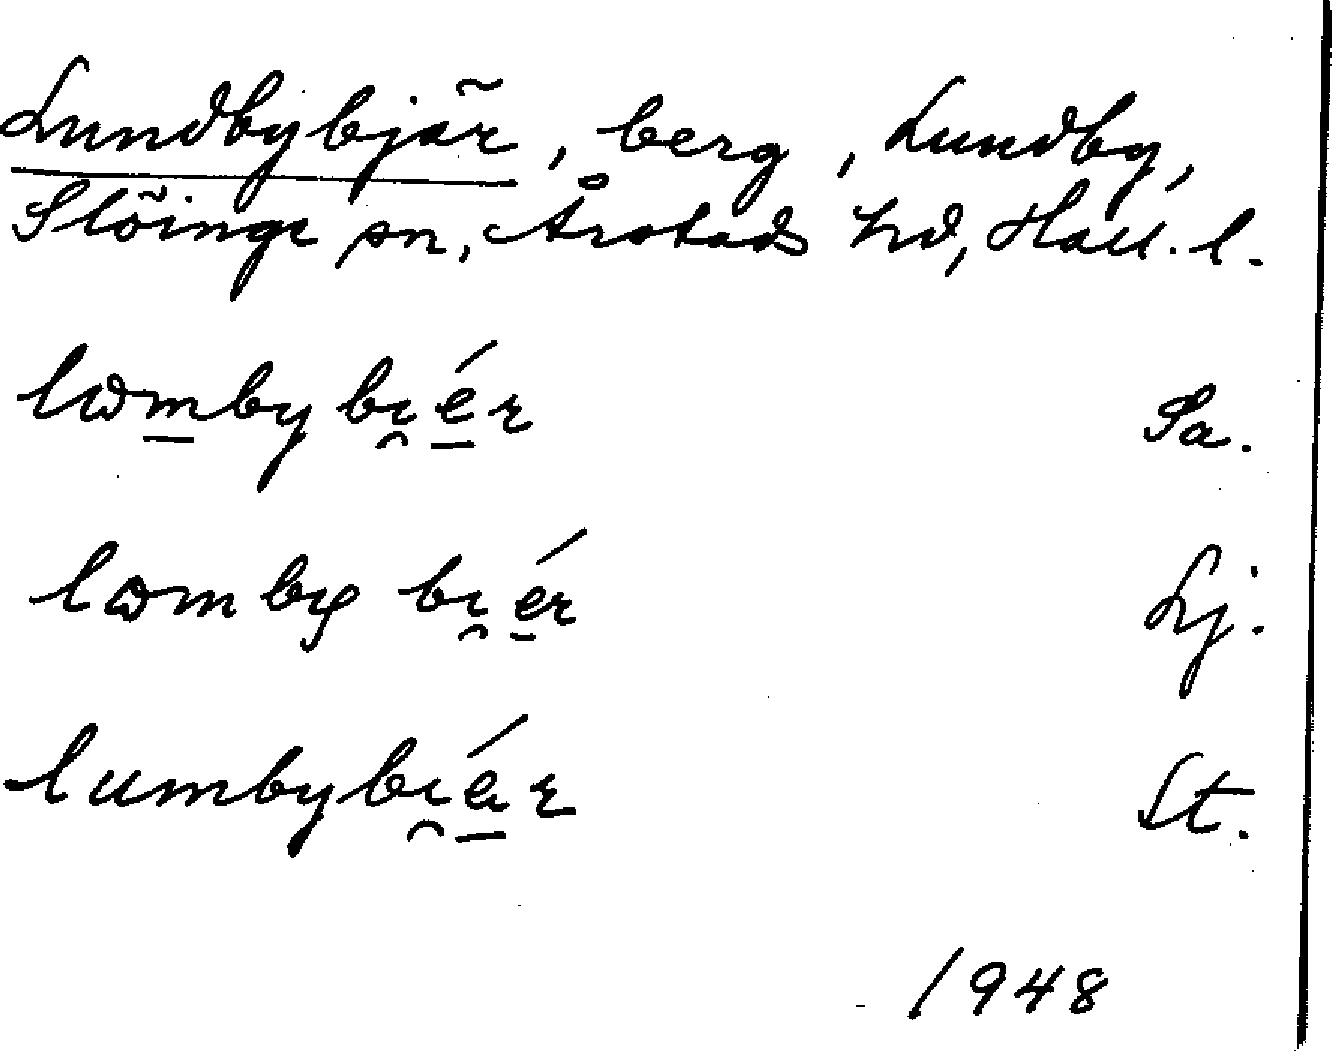 Lundbybjär, berg, Lundby,
Slöinge sn, Årstads hd, Hall. l.
lωmby bi̯ér Sa.
lωmby bi̯ér Lj.
lumbybi̯ér St.
1948